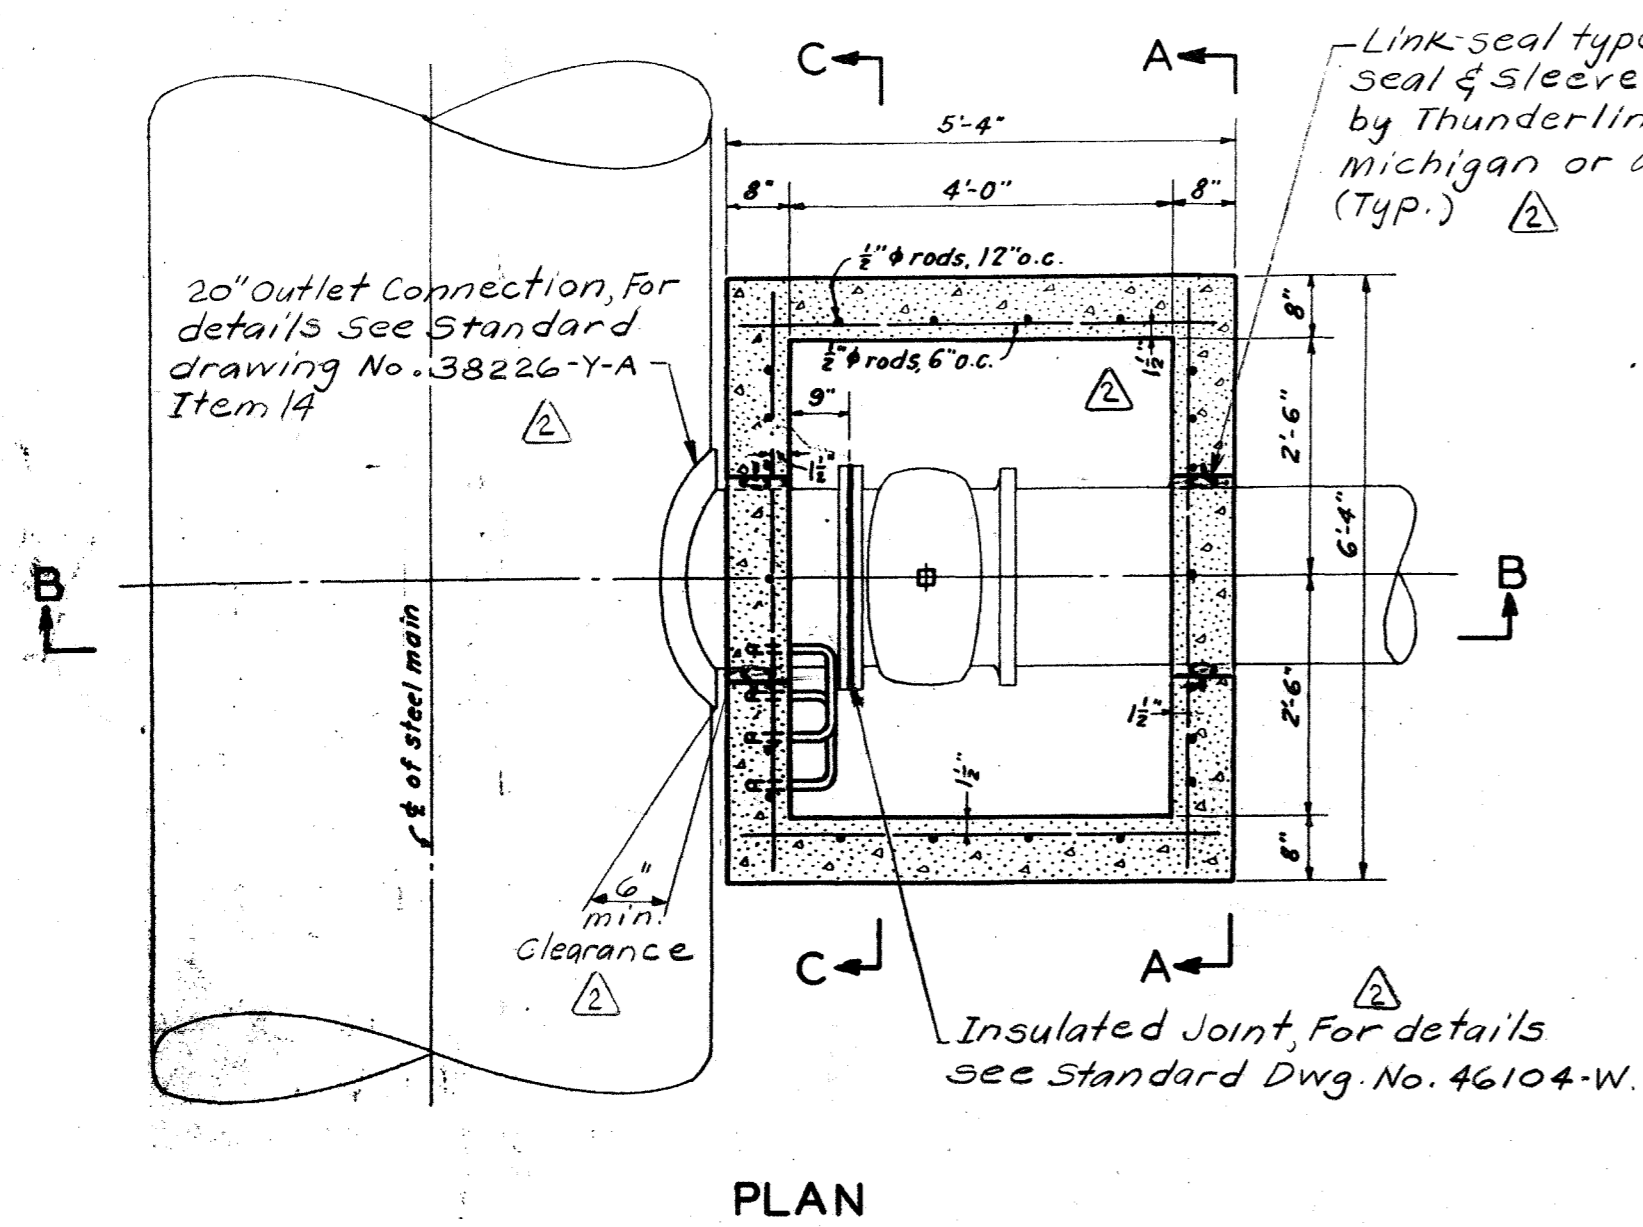 C
A
Link-seal typ
seal & Sleeve
by Thunderlin
michigan or
(Typ.)
2
5'-4"
8"
4'-0"
8"
½"ϕ rods, 12" o.c.
½"ϕ rods, 6" o.c.
1½"
2
8"
20" Outlet Connection, For
details See Standard
drawing No. 38226-Y-A
Item 14
2
9"
1½"
2'-6"
6'-4"
B
B
℄ of steel main
1½"
2'-6"
1½"
8"
6"
min.
Clearance
2
C
A
2
Insulated Joint, For details
see Standard Dwg. No. 46104-W.
PLAN